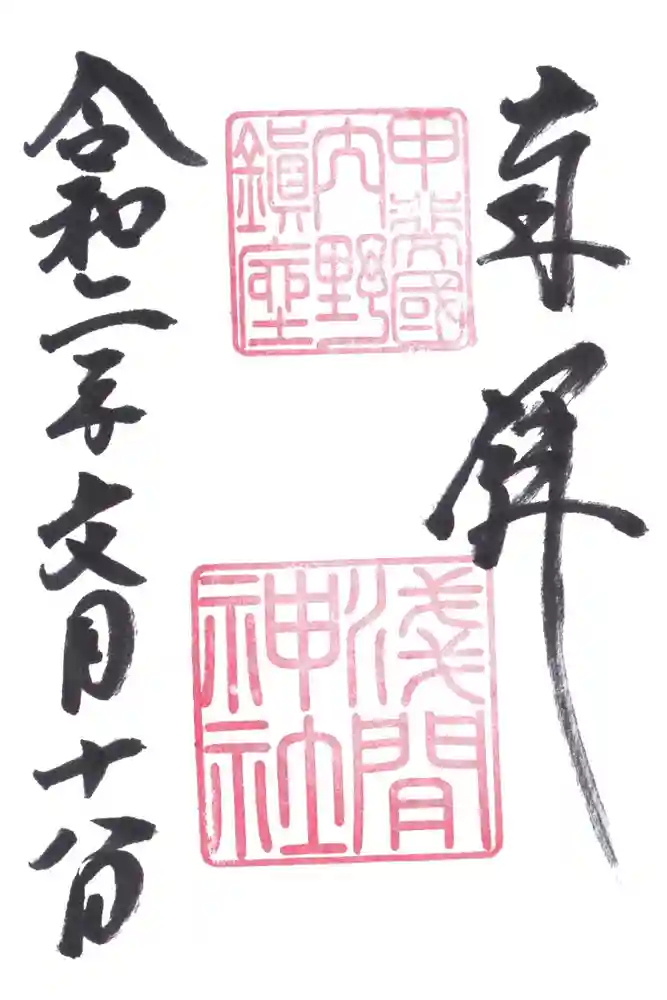 奉拝
甲斐國
内野
鎭座
淺間
神社
令和二年文月十八日